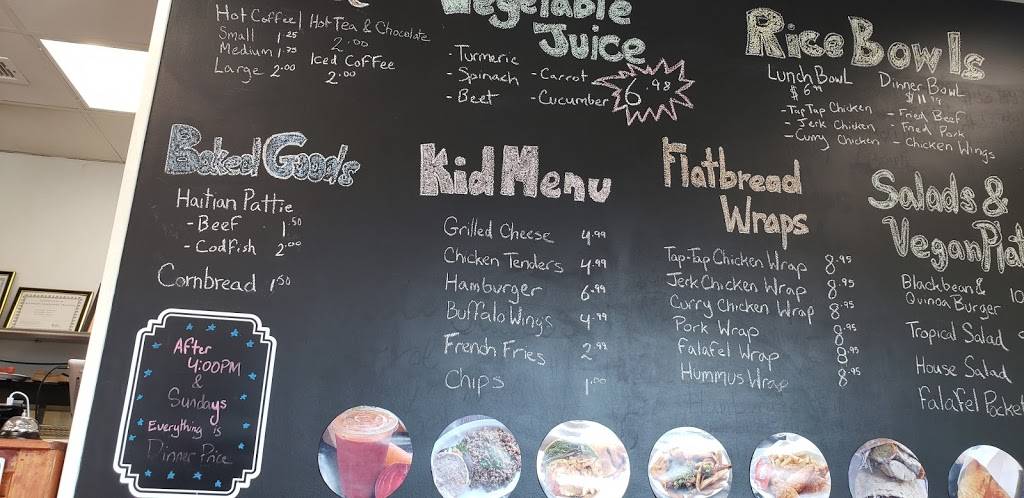 Hot Coffee | Hot Tea & Chocolate
Small 1.25 2.00
Medium 1.75 Iced Coffee
Large 2.00 2.00
Vegetable
Juice
- Turmeric
- Spinach - Carrot
- Beet - Cucumber 6.98
Rice Bowls
Lunch Bowl
$6.99
- Tap Tap Chicken
- Jerk Chicken
- Curry Chicken
Dinner Bowl
- Fried Beef
- Fried Pork
- Chicken Wings
Baked Goods
Haitian Pattie
- Beef 1.50
- Codfish 2.00
Cornbread 1.50
After
4:00PM
&
Sundays
Everything is
Dinner Price
Kid Menu
Grilled Cheese 4.99
Chicken Tenders 4.99
Hamburger 6.99
Buffalo Wings 4.99
French Fries 2.93
Chips 1.00
Flatbread
Wraps
Tap-Tap Chicken Wrap 8.95
Jerk Chicken Wrap 8.95
Curry Chicken Wrap 8.95
Pork Wrap 8.95
Falafel Wrap 8.95
Hummus Wrap 8.95
Salads &
Vegan Plat
Blackbean &
Quinoa Burger 10
Tropical Salad
House Salad
Falafel Pocket